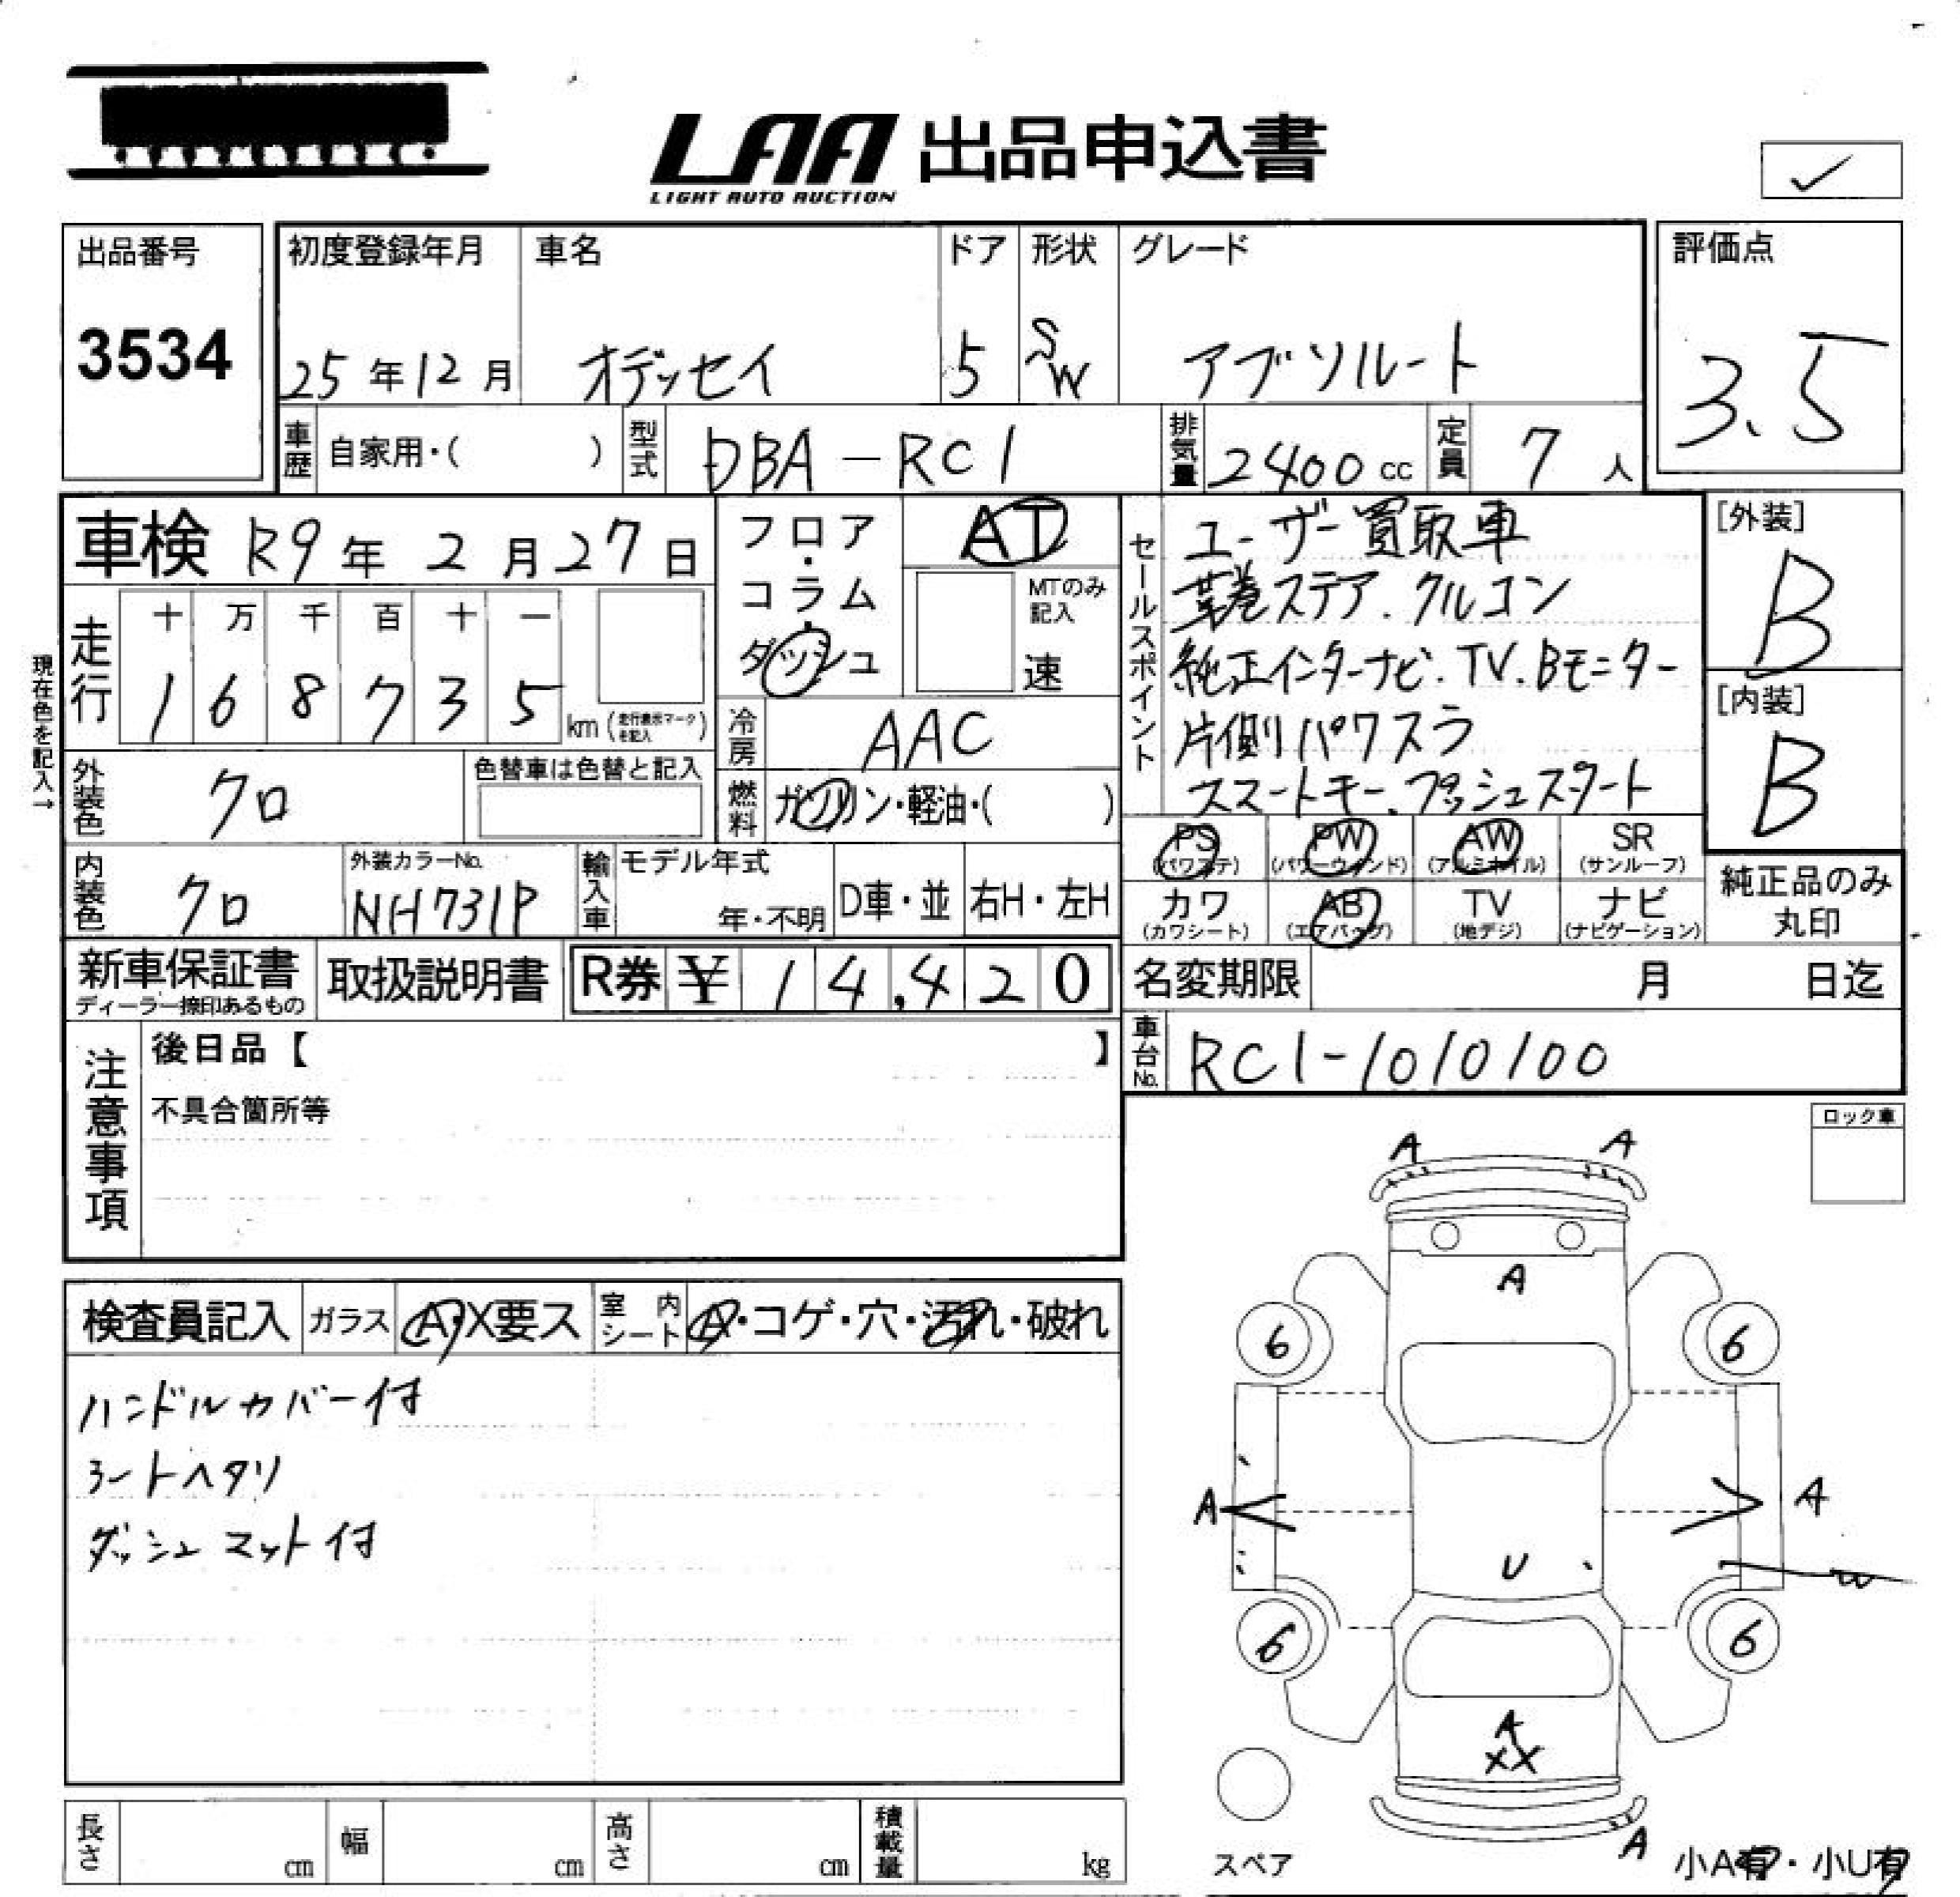 LAA 出品申込書
LIGHT AUTO AUCTION
出品番号
3534
初度登録年月
25年12月
車名
オデッセイ
ドア
5
形状
SW
グレード
アブソルート
評価点
3.5
車歴 自家用・( )
型式 DBA-RC1
排気量 2400cc
定員 7人
車検 R9年2月27日
フロア・コラム・ダッシュ
AT
MTのみ記入
速
セールスポイント
ユーザー買取車
革巻ステア.クルコン
純正インターナビ.TV.Bモニター
片側パワスラ
スマートキー.プッシュスタート
[外装]
B
[内装]
B
現在色を記入→
走行
十 万 千 百 十 一
1 6 8 7 3 5 km (走行表示マークを記入)
冷房 AAC
外装色 クロ
色替車は色替と記入
燃料 ガソリン・軽油・( )
内装色 クロ
外装カラーNo.
NH731P
輸入車
モデル年式
年・不明
D車・並
右H・左H
PS (パワステ)
PW (パワーウィンド)
AW (アルミホイル)
SR (サンルーフ)
カワ (カワシート)
AB (エアバッグ)
TV (地デジ)
ナビ (ナビゲーション)
純正品のみ丸印
新車保証書
ディーラー捺印あるもの
取扱説明書
R券 ¥ 14,420
名変期限 月 日迄
車台No. RC1-1010100
注意事項
後日品【 】
不具合箇所等
ロック車
検査員記入
ガラス A・X要ス
室内シート A・コゲ・穴・汚れ・破れ
ハンドルカバー付
シートヘタリ
ダッシュマット付
A A
A
6 6
A A
U
W
6 6
A
XX
A
スペア
小A有・小U有
長さ cm
幅 cm
高さ cm
積載量 kg